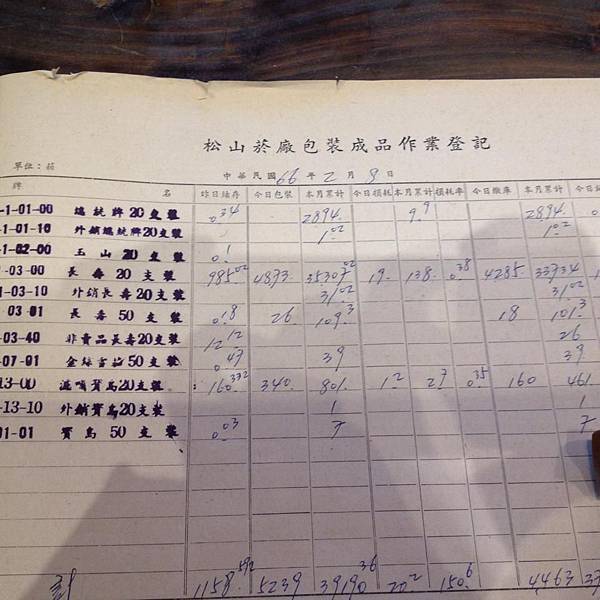 松山菸廠包裝成品作業登記
單位：箱 中華民國66年2月9日
牌 名 昨日結存 今日包裝 本月累計 今日損耗 本月累計 損耗率 今日繳庫 本月累計
-1-01-00 總統牌20支裝 0.34 2894. 9.9 2894.
-1-01-10 外銷總統牌20支裝 1.02 1.02
-1-02-00 玉山20支裝 0.1
-03-00 長壽20支裝 985.02 4893 35307.02 19. 138. 0.38 4285 33734
-03-10 外銷長壽20支裝 31.02 31.02
03-01 長壽50支裝 0.18 26. 109.3 18 101.3
-03-40 非賣品長壽20支裝 12.12 26
-07-01 50支裝 0.47 39 39
13-00 濾嘴寶島20支裝 160.372 340. 801. 1.2 2.7 0.35 160 461.
-13-10 外銷寶島20支裝 1 1
01-01 寶島50支裝 0.03 7 7
計 1158.592 5239 39190.36 20.2 150.6 4463